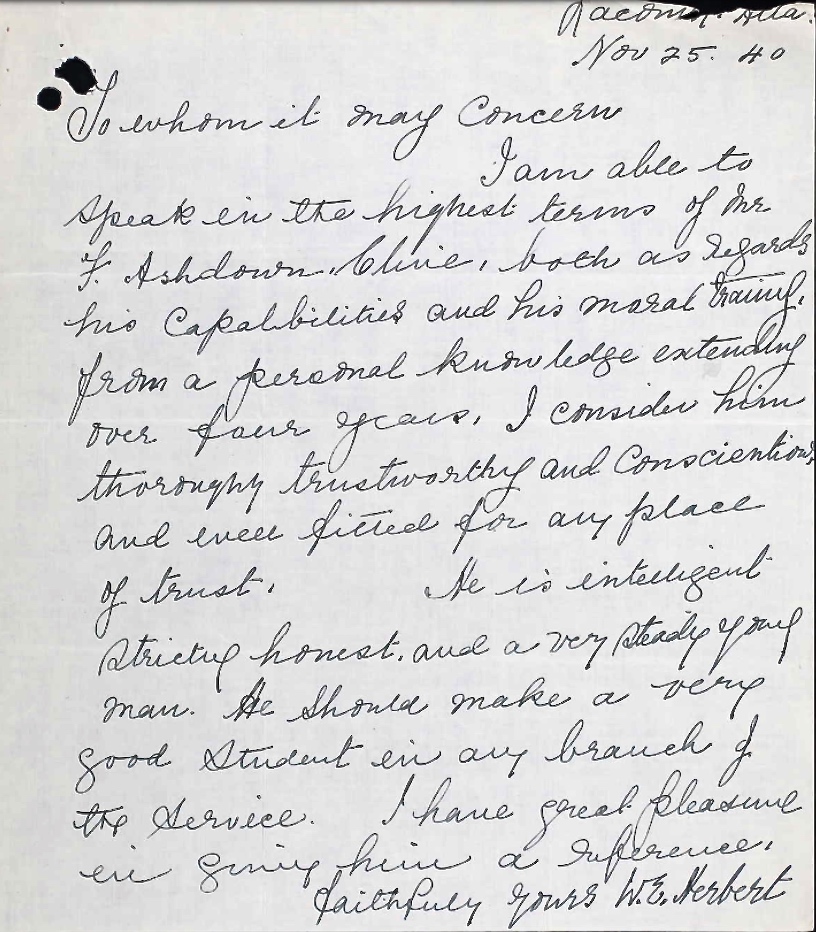 Lacombe. Alta.
Nov 25. 40
To whom it may Concern
I am able to
speak in the highest terms of Mr
F. Ashdown. Clive, both as regards
his Capabilities and his moral training,
from a personal knowledge extending
over four years, I consider him
thoroughy trustworthy and Conscientious
and well fitted for any place
of trust. He is intelligent
strictly honest. and a very steady young
man. He should make a very
good student in any branch of
the Service. I have great pleasure
in giving him a reference.
faithfuly yours W.E. Herbert